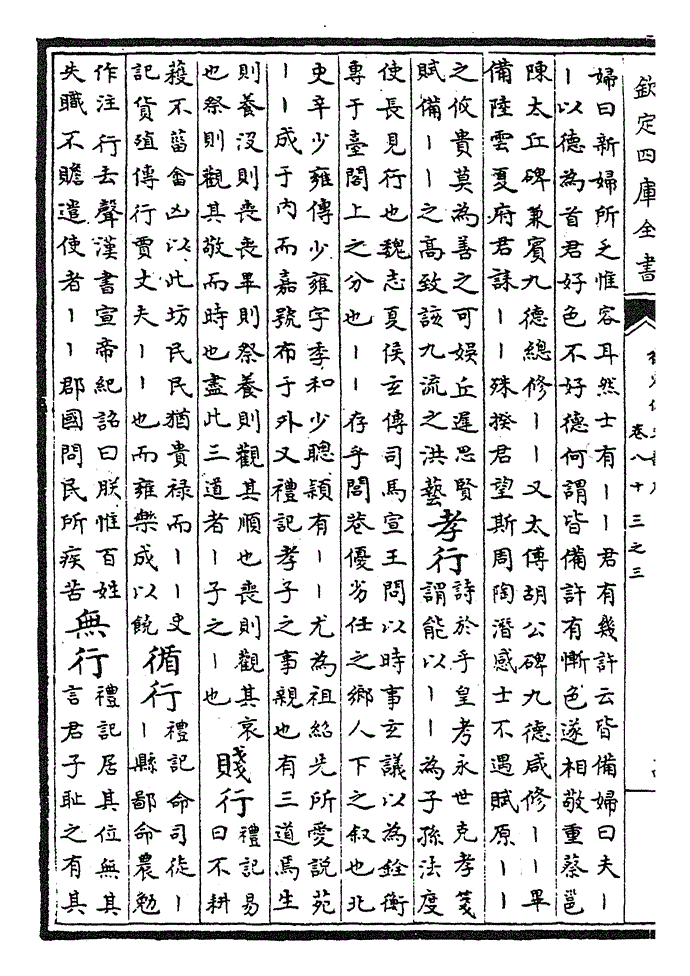 欽定四庫全書
卷八十三之三
婦曰新婦所乏惟容耳然士有丨丨君有幾許云皆備婦曰夫丨
丨以德為首君好色不好德何謂皆備許有慚色遂相敬重蔡邕
陳太丘碑兼資九德總修丨丨又太傅胡公碑九德咸修丨丨畢
備陸雲夏府君誄丨丨殊揆君望斯周陶潛感士不遇賦原丨丨
之攸貴莫為善之可娛丘遲思賢
賦備丨丨之高致該九流之洪藝
孝行
詩於乎皇考永世克孝箋
謂能以丨丨為子孫法度
使長見行也魏志夏侯玄傳司馬宣王問以時事玄議以為銓衡
專于臺閣上之分也丨丨存乎閭巷優劣任之鄉人下之叙也北
史辛少雍傳少雍字季和少聰穎有丨丨尤為祖紹先所愛說苑
丨丨成于內而嘉號布于外又禮記孝子之事親也有三道焉生
則養沒則喪喪畢則祭養則觀其順也喪則觀其哀
也祭則觀其敬而時也盡此三道者丨子之丨也
賤行
禮記易
曰不耕
穫不菑畬凶以此坊民民猶貴祿而丨丨史
記貨殖傳行賈丈夫丨丨也而雍樂成以饒
循行
禮記命司徒丨
丨縣鄙命農勉
作注行去聲漢書宣帝紀詔曰朕惟百姓
失職不贍遣使者丨丨郡國問民所疾苦
無行
禮記居其位無其
言君子恥之有其